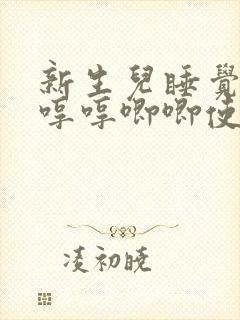 新生兒睡覺
哼哼唧唧使
凌初曉